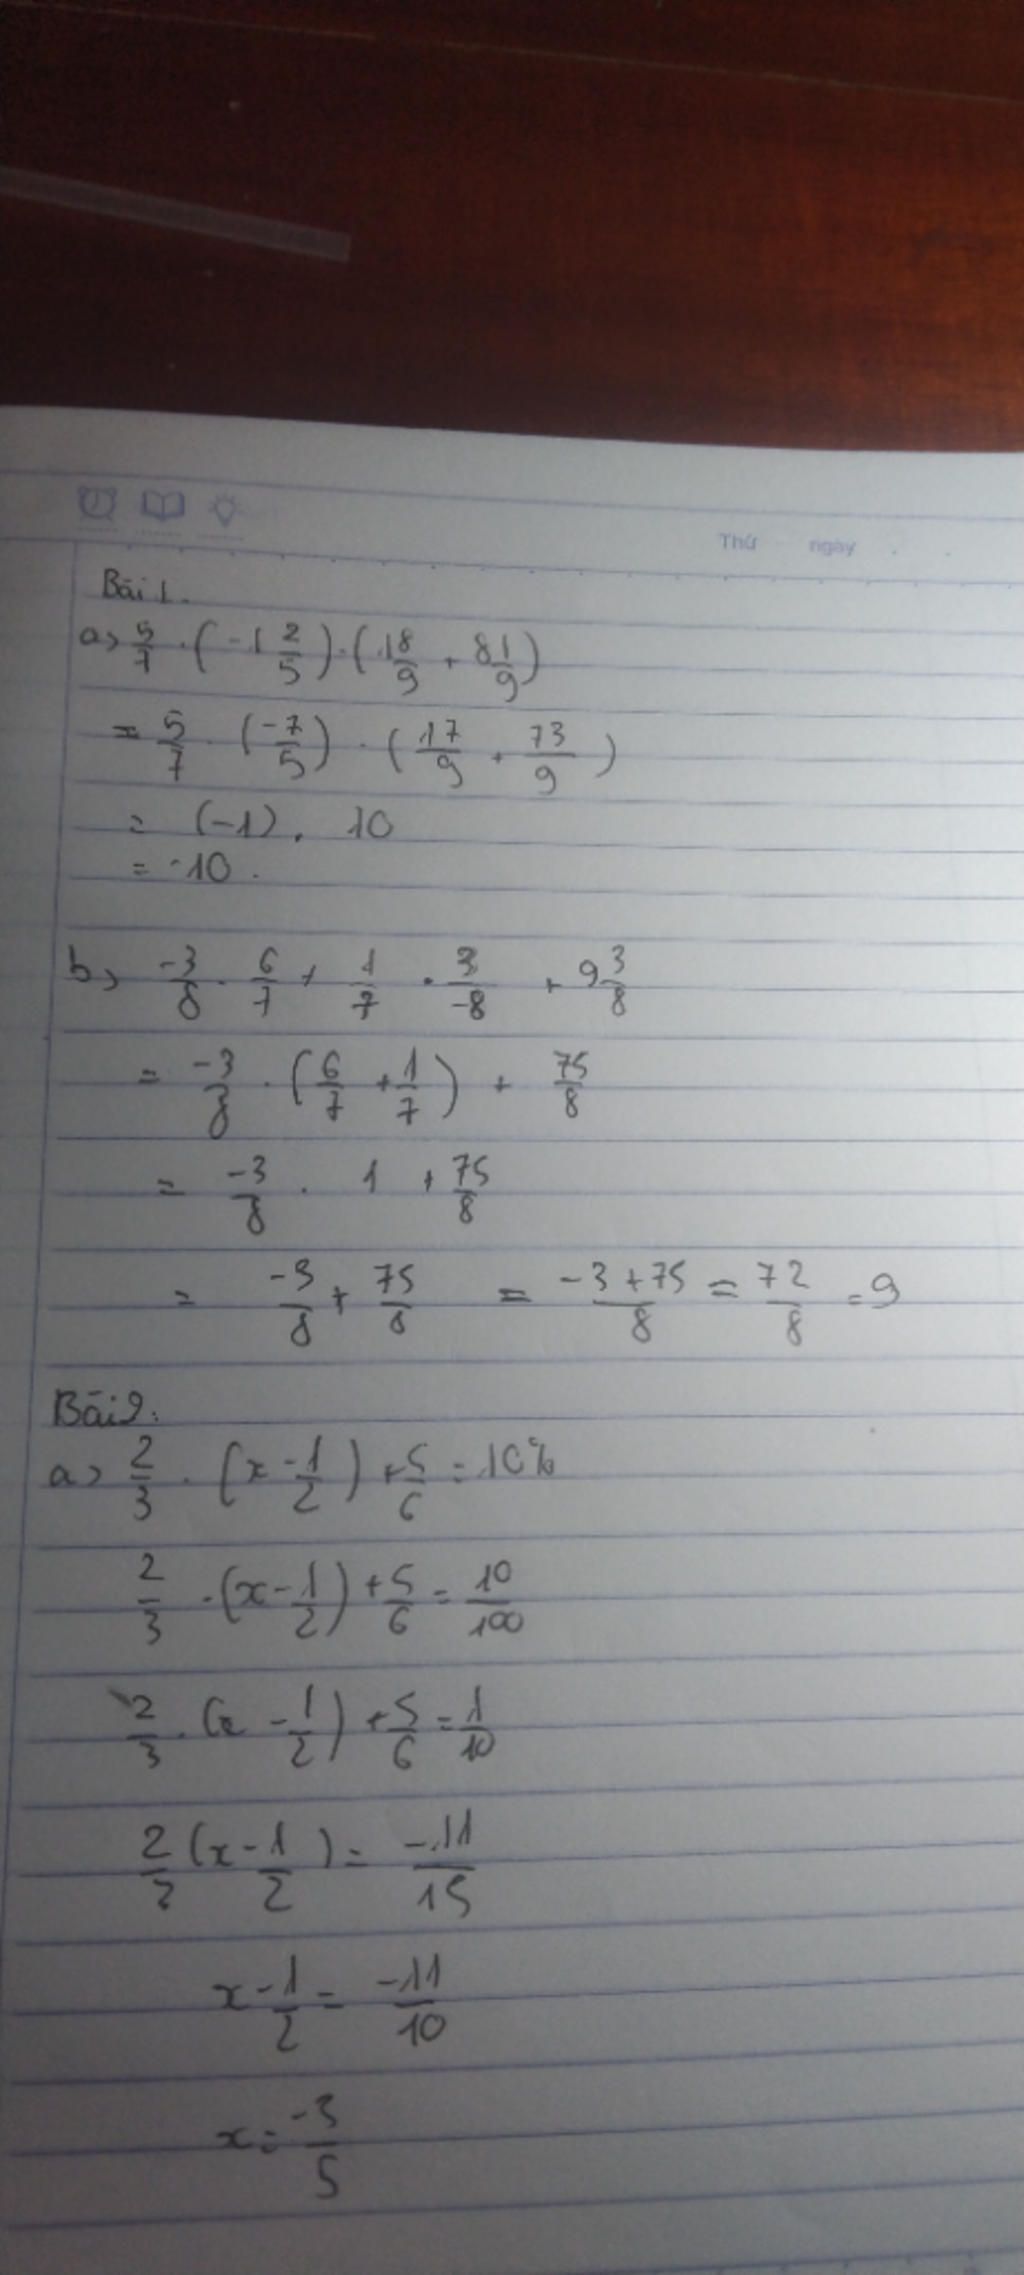 Thứ ngày
Bài 1.
a) 5/7 . (-1 2/5) . (1 8/9 + 8 1/9)
= 5/7 . (-7/5) . (17/9 + 73/9)
= (-1) . 10
= -10.
b) -3/8 . 6/7 + 1/7 . 3/-8 + 9 3/8
= -3/8 . (6/7 + 1/7) + 75/8
= -3/8 . 1 + 75/8
= -3/8 + 75/8 = -3+75/8 = 72/8 = 9
Bài 2:
a) 2/3 . (x - 1/2) + 5/6 = 10%
2/3 . (x - 1/2) + 5/6 = 10/100
2/3 . (x - 1/2) + 5/6 = 1/10
2/3 (x - 1/2) = -11/15
x - 1/2 = -11/10
x = -3/5